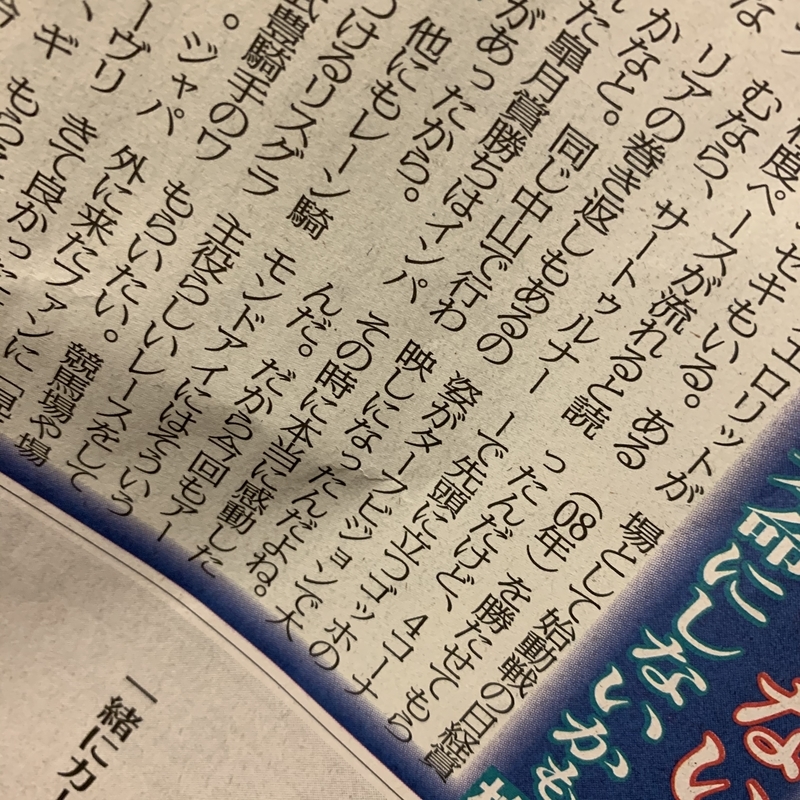 エロリットが
セキもいる。ある
程度ペースが流れると読
むなら、サートゥルナー
リアの巻き返しもあるの
かなと。同じ中山で行わ
た皐月賞勝ちはインパ
があったから。
他にもレーン騎
つけるリスグラ
武豊騎手のワ
。ジャパ
ーヴリ
ギ
場として始動戦の日経賞
（08年）を勝たせてもら
ったんだけど、4コーナ
ーで先頭に立つゴッホの
祭がターフビジョンで大
映しになったんだよね。
その時に本当に感動した
んだ。だから今回もアー
モンドアイにはそういう
主役らしいレースをして
もらいたい。競馬場や場
外に来たファンに「見
きて良かった
もら
命にしないかも
一緒にカー